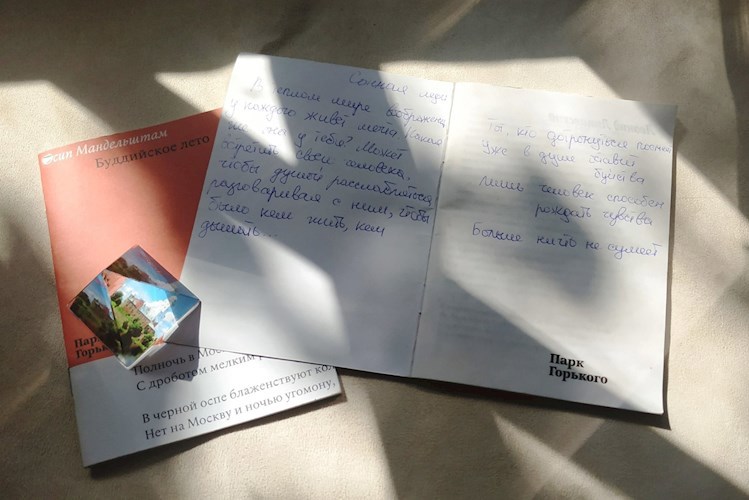 Осип Мандельштам
Буддийское лето
Парк
Полночь в Мос
С дроботом мелким р
В черной оспе блаженствуют кол
Нет на Москву и ночью угомону,
В теплом мире воображения
у каждого живёт мечта. Какая
же она у тебя? Может
встретить своего человека,
чтобы душой расслабляться,
разговаривая с ним, чтобы
было кем жить, кем
дышать...
Ты, кто дотронулся
Уже в душе оставил
буйства
Лишь человек способен
рождать чувства
Больше никто не сумеет
Парк
Горького